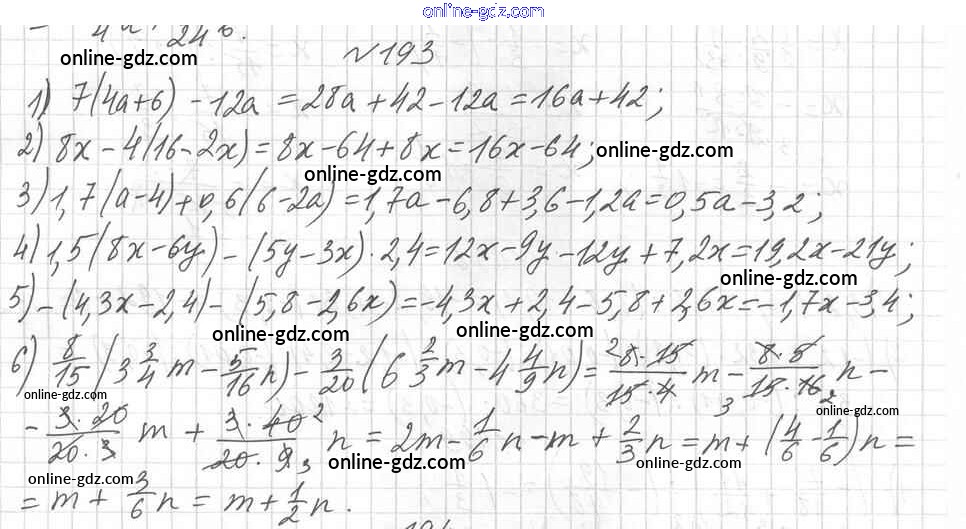 online-gdz.com
4a · 24b.
online-gdz.com
№193
1) 7(4a+6) - 12a = 28a + 42 - 12a = 16a + 42;
2) 8x - 4(16-2x) = 8x - 64 + 8x = 16x - 64;
online-gdz.com
online-gdz.com
3) 1,7(a-4) + 0,6(6-2a) = 1,7a - 6,8 + 3,6 - 1,2a = 0,5a - 3,2;
4) 1,5(8x-6y) - (5y-3x) · 2,4 = 12x - 9y - 12y + 7,2x = 19,2x - 21y;
online-gdz.com
5) -(4,3x-2,4) - (5,8-2,6x) = -4,3x + 2,4 - 5,8 + 2,6x = -1,7x - 3,4;
online-gdz.com
online-gdz.com
6) 8/15 (3 3/4 m - 5/16 n) - 3/20 (6 2/3 m - 4 4/9 n) = 8·15/15·4 m - 8·5/15·16 n -
online-gdz.com
online-gdz.com
- 3·20/20·3 m + 3·40/20·9 n = 2m - 1/6 n - m + 2/3 n = m + (4/6 - 1/6) n =
online-gdz.com
online-gdz.com
online-gdz.com
= m + 3/6 n = m + 1/2 n.